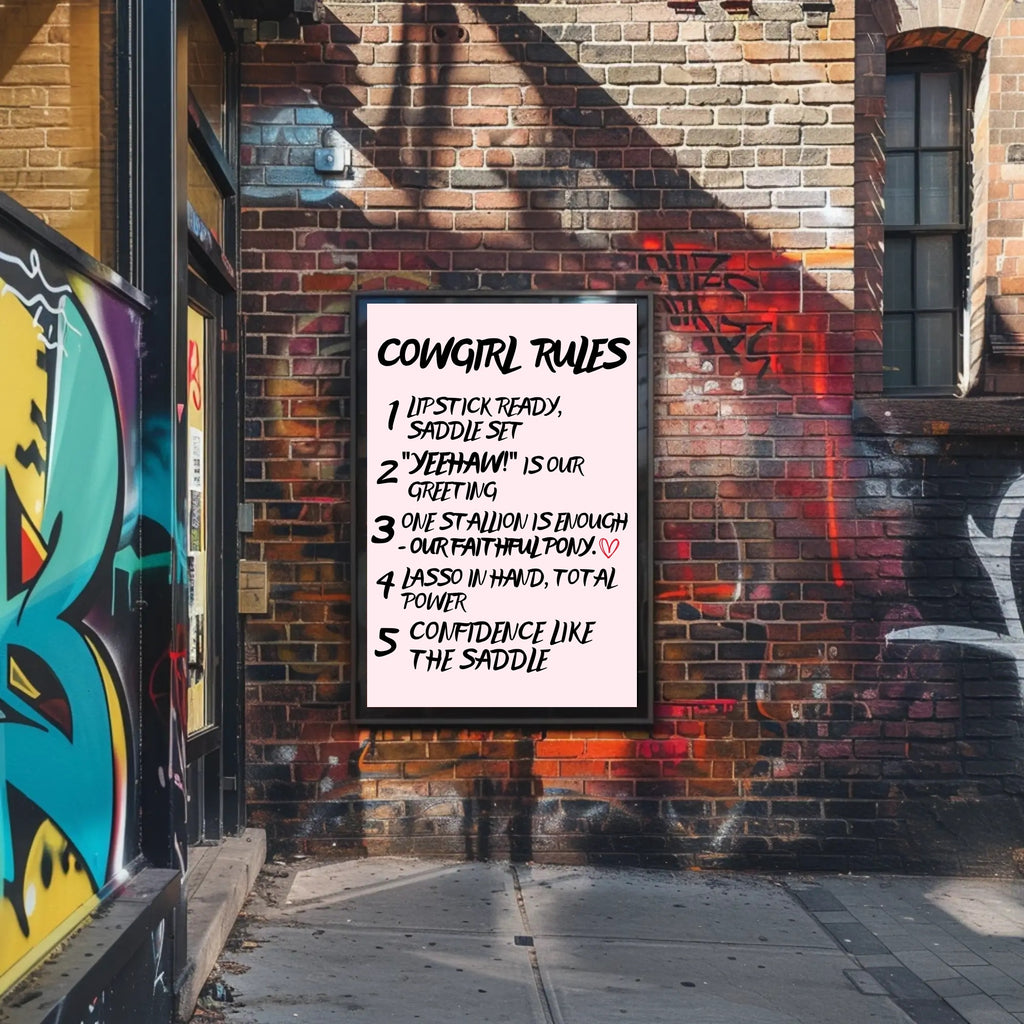 COWGIRL RULES
1 LIPSTICK READY,
SADDLE SET
2 "YEEHAW!" IS OUR
GREETING
3 ONE STALLION IS ENOUGH
- OUR FAITHFUL PONY.
4 LASSO IN HAND, TOTAL
POWER
5 CONFIDENCE LIKE
THE SADDLE